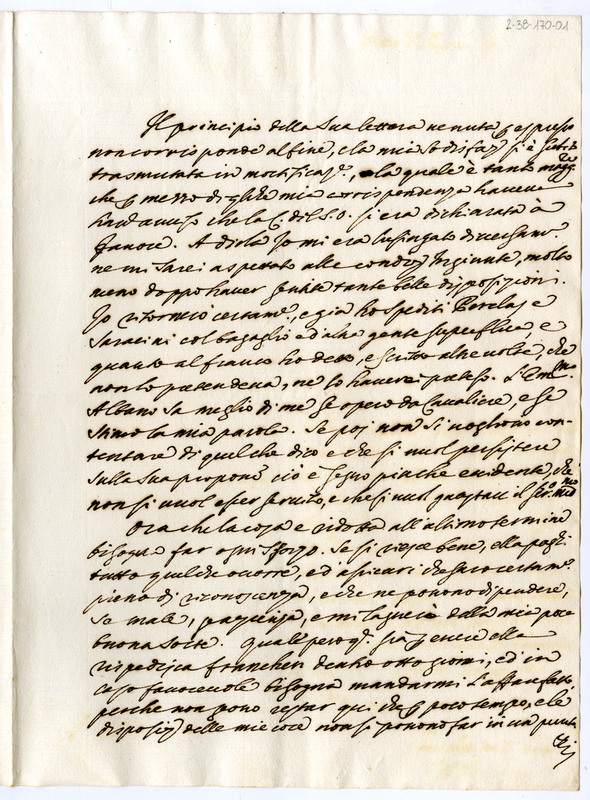 2-38-170-01
Il principio della Sua lettera venuta p espresso
non corrisponde al fine, e la mia sodisfaz.
trasmutata in mortificaz.e, la quale è tanto
che p mezzo di altre mia corrispondenze havevo
havuto avviso che la C. di S.O. si era dichiarata à
favore. Io mi era lusingato diversam.e
ne mi sarei aspettato alle condiz. ingiunte, molto
meno doppo haver sentite tante belle disposizioni.
Io ritornerò certam.e, e già ho spediti e
Saracini col bagaglio ed altra gente superflua, e
quanto al franco ho detto, e scritto altre volte, che
non lo pretendeva, ne lo haverei preteso. L'Em.mo
Albano sa meglio di me se opero da Cavaliere, e se
stimo la mia parola. Se poi non si vogliono con-
tentare di quel che dico e che si vuol persistere
sulla sua propone ciò è segno più che evidente, che
non si vuol esser servito, e che si vuol il
Ora che la cosa e ridotta all'ultimo termine
bisogna far ogni sforzo. Se si riesce bene, ella
tutto quel che occorre, ed assicuri che sarò certam.e
pieno di riconoscenza, e che ne potranno dipendere,
se male, pazienza, e mi lagnerò dalla mia poca
buona sorte.
rispedisca dentro otto giorni, ed in
caso favorevole bisogna mandarmi l'affare fatto,
perche non posso restar qui che p poco tempo, e le
disposiz. delle mie cose non si ponno far in un punto